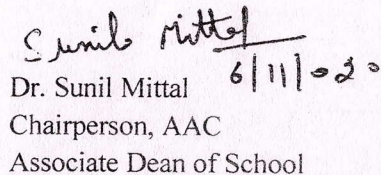 Sunil Mittal
6/11/2020
Dr. Sunil Mittal
Chairperson, AAC
Associate Dean of School